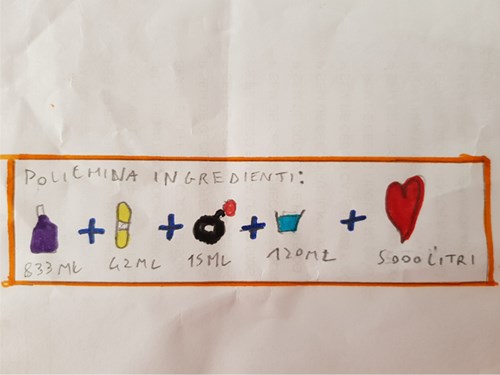 POLICHINA INGREDIENTI:
833 ML + 42 ML + 15 ML + 120 ML + 5000 LITRI